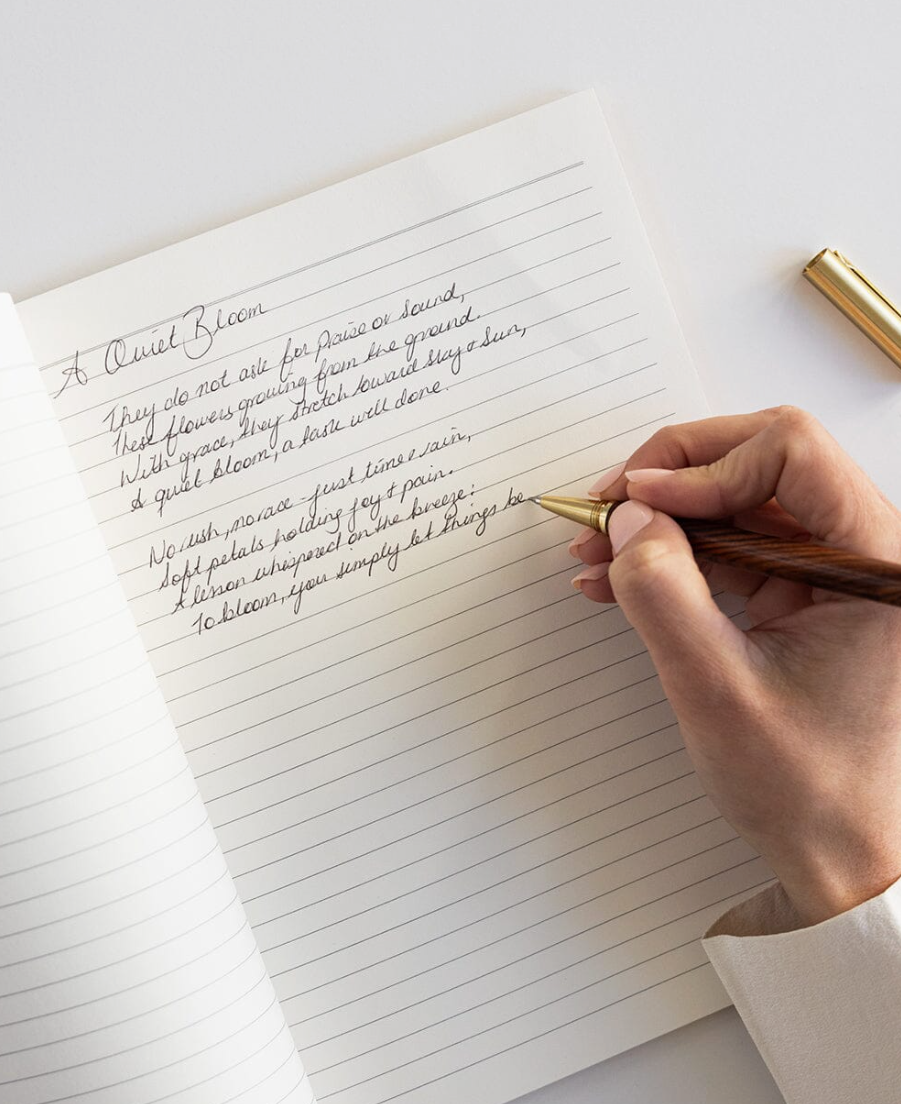 A Quiet Bloom
They do not ask for praise or sound,
These flowers growing from the ground.
With grace, they stretch toward sky & sun,
A quiet bloom, a task well done.
No rush, no race - just time & rain,
Soft petals holding joy & pain.
A lesson whispered on the breeze:
To bloom, you simply let things be